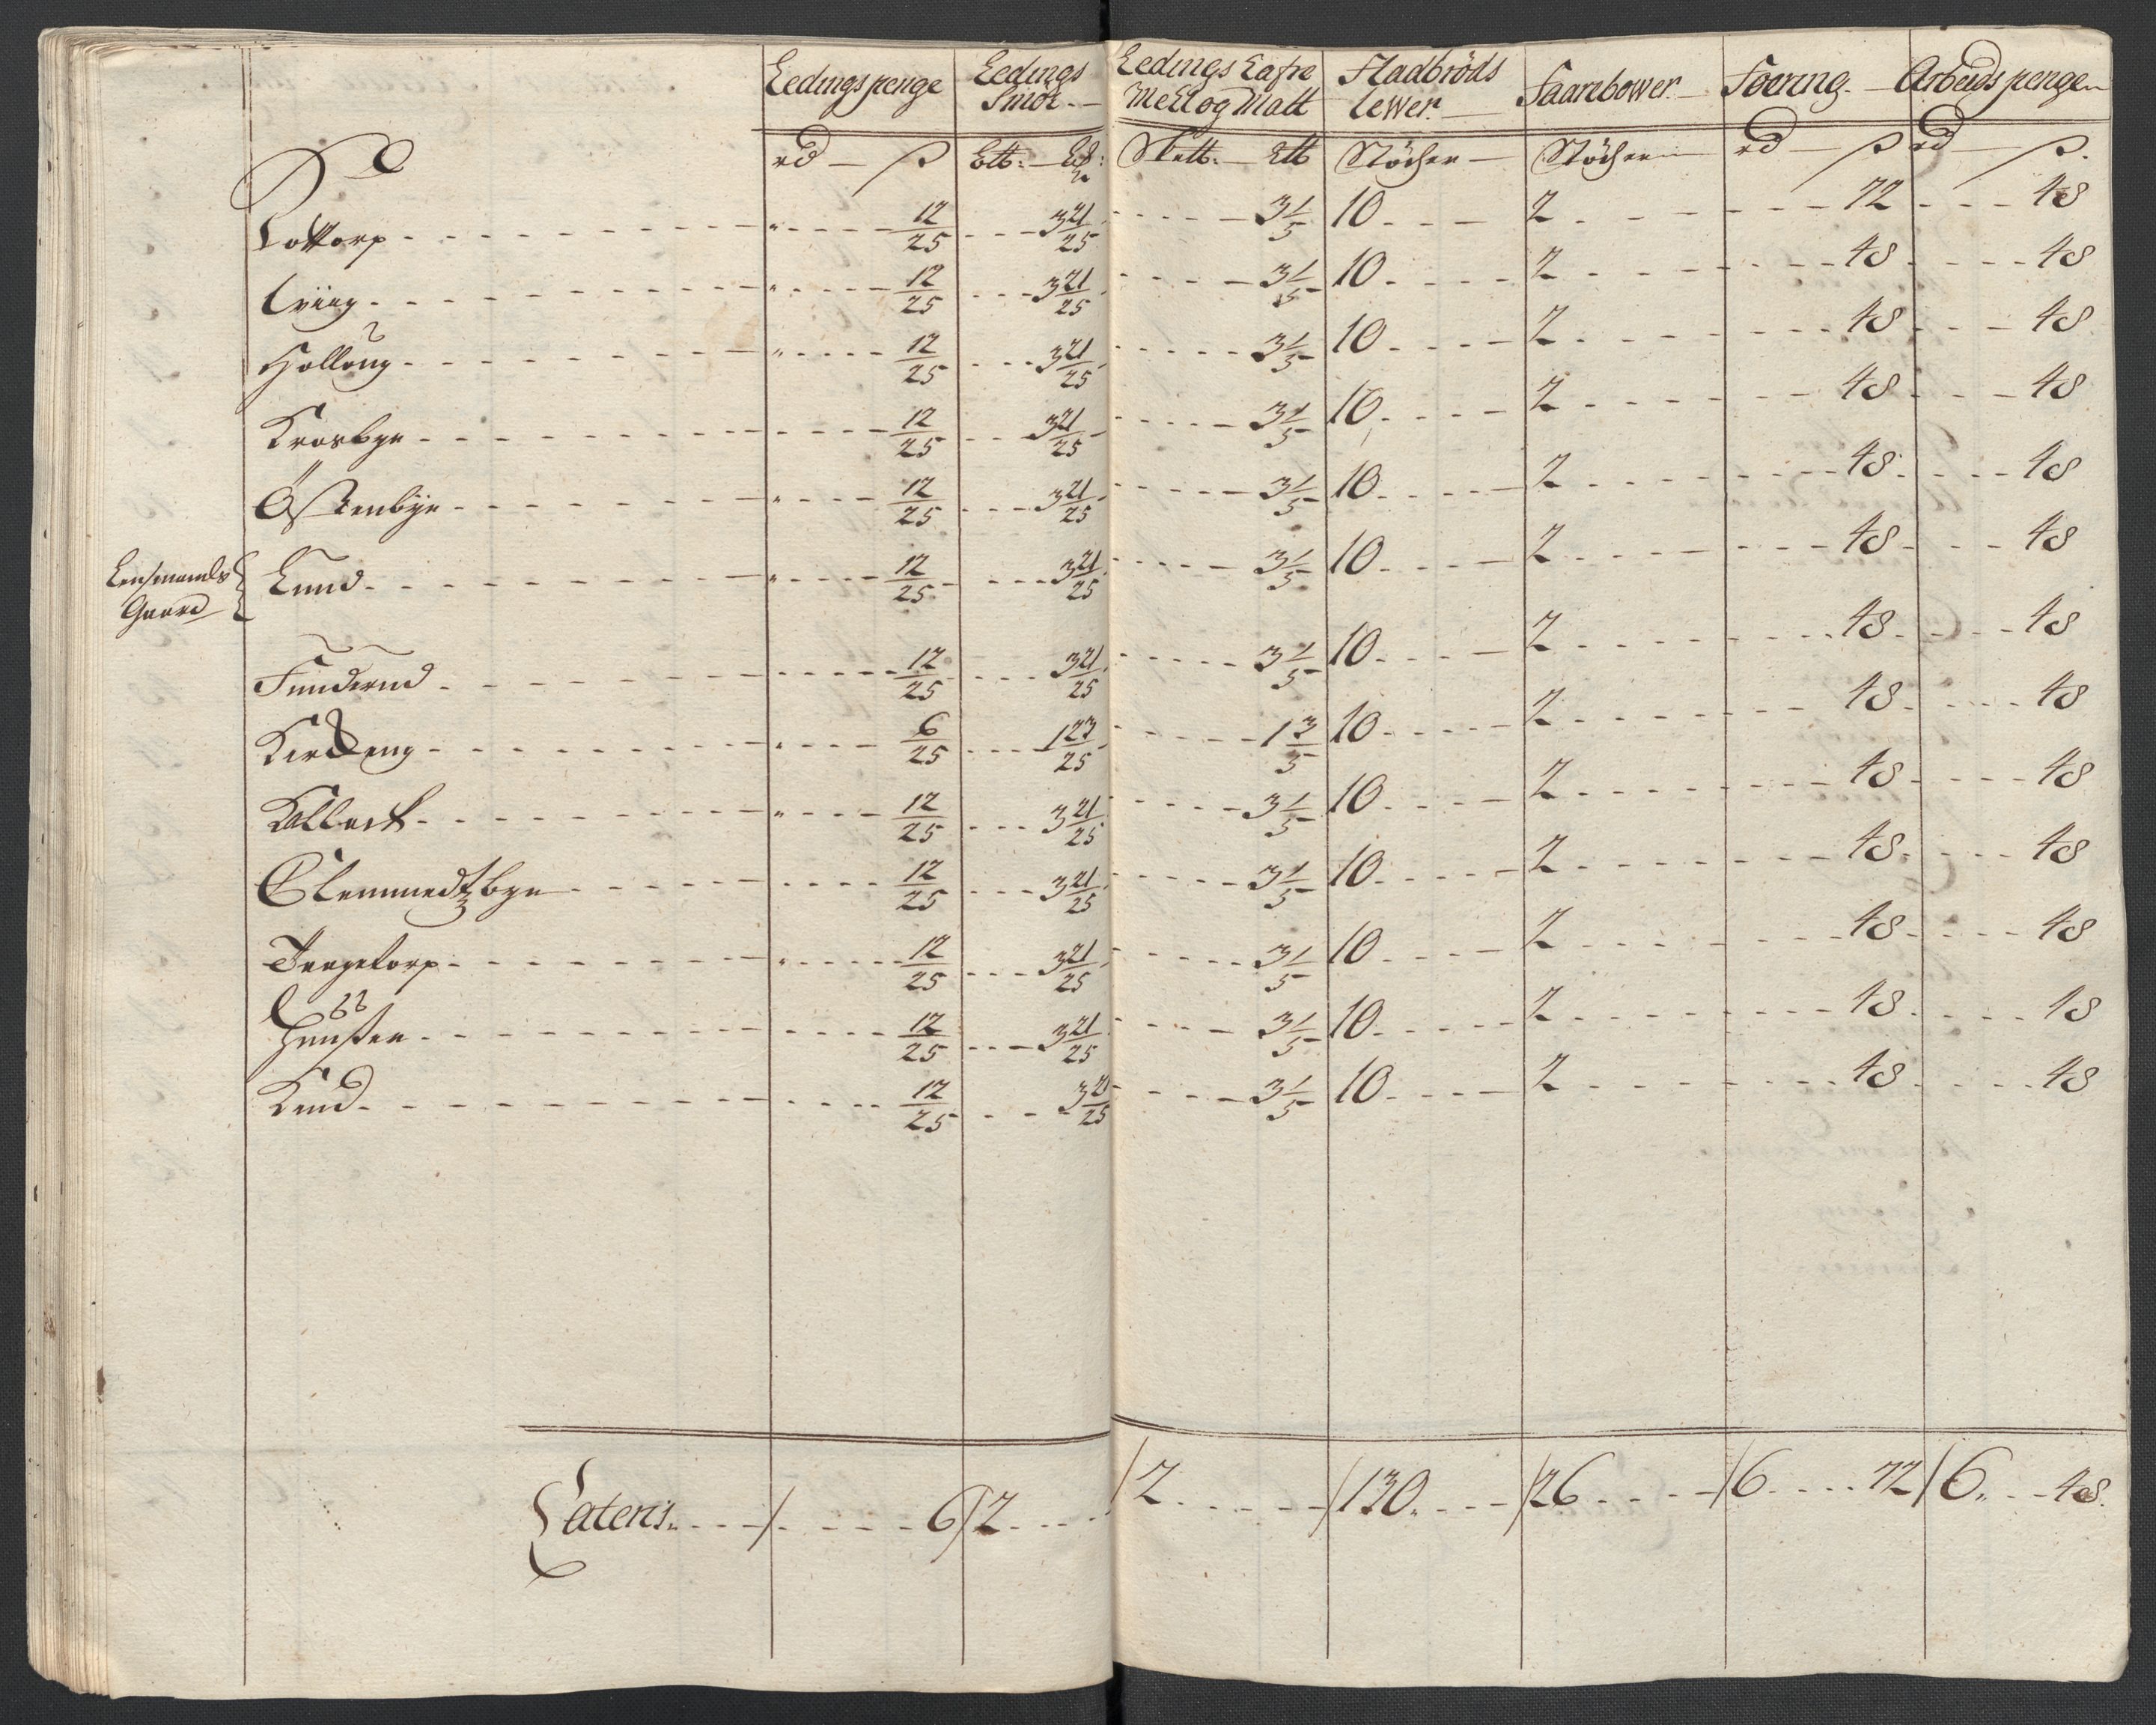 Ledingspenge Ledings Smör.— Ledings Lafre Meel og Malt Fladbröds Lewer.— Faarebower.— Foering.— Arbeids pengen
rd — ß Ltb: — Skett. — Ltb Stöcher — Stöcher — rd — ß rd — ß.
Lottorp - - - " - - - 12/25 - - - 3 21/25 - - - 3 1/5 10 - - - 2 - - - 72 - - - 48
- - - " - - - 12/25 - - - 3 21/25 - - - 3 1/5 10 - - - 2 - - - 48 - - - 48
Hollong - - - " - - - 12/25 - - - 3 21/25 - - - 3 1/5 10 - - - 2 - - - 48 - - - 48
Krosbye - - - 12/25 - - - 3 21/25 - - - 3 1/5 10 - - - 2 - - - 48 - - - 48
Östenbye - - - " - - - 12/25 - - - 3 21/25 - - - 3 1/5 10 - - - 2 - - - 48 - - - 48
Lensmands Gaard { Lund - - - " - - - 12/25 - - - 3 21/25 - - - 3 1/5 10 - - - 2 - - - 48 - - - 48
Funderud - - - 12/25 - - - 3 21/25 - - - 3 1/5 10 - - - 2 - - - 48 - - - 48
Kirckeng - - - " - - - 6/25 - - - 1 23/25 - - - 1 3/5 10 - - - 2 - - - 48 - - - 48
Kallack - - - " - - - 12/25 - - - 3 21/25 - - - 3 1/5 10 - - - 2 - - - 48 - - - 48
Clemmedtzbye - - - 12/25 - - - 3 21/25 - - - 3 1/5 10 - - - 2 - - - 48 - - - 48
Tangetorp - - - " - - - 12/25 - - - 3 21/25 - - - 3 1/5 10 - - - 2 - - - 48 - - - 48
- - - 12/25 - - - 3 21/25 - - - 3 1/5 10 - - - 2 - - - 48 - - - 48
- - - 12/25 - - - 3 21/25 - - - 3 1/5 10 - - - 2 - - - 48 - - - 48
Lateris. - - - / - - - 6 / 2 - - - / 2 - - - / 130. - - - / 26 - - - / 6 - - - 72 / 6. - - - 48.